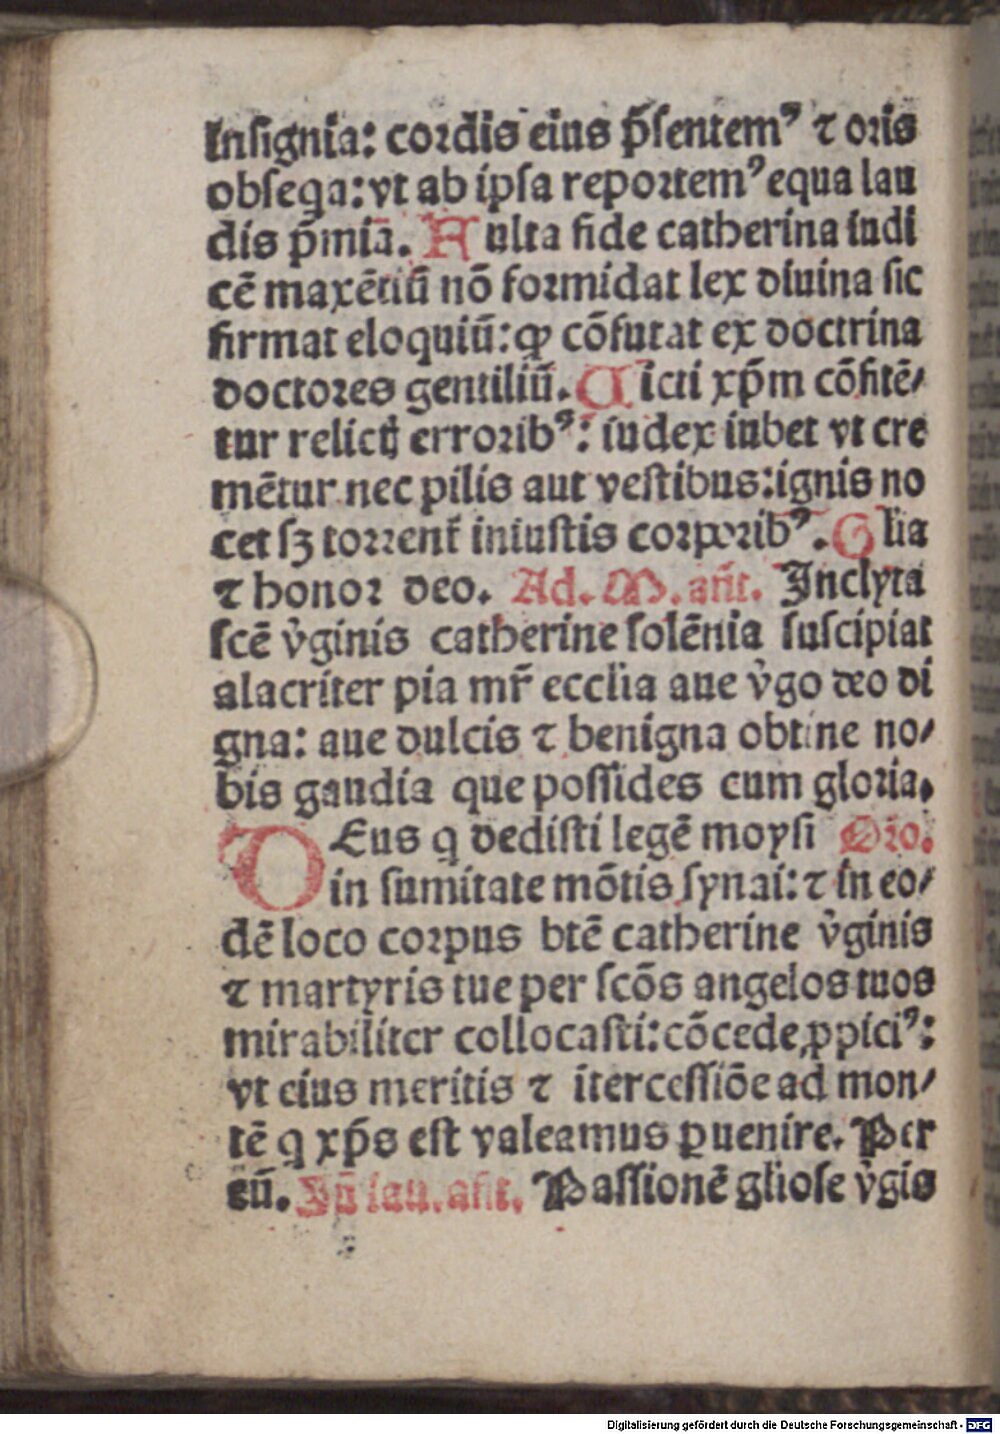 Insignia: cordis eius p̄sentemꝰ ⁊ oris
obseqa: vt ab ipsa reportemꝰ equa lau
dis p̄mia. Fulta fide catherina iudi
cē maxētiū nō formidat lex diuina sic
firmat eloquiū: ꝙ cōfutat ex doctrina
doctores gentiliū. Victi xp̄m cōfitē/
tur relictꝭ erroribꝰ: iudex iubet vt cre
mētur nec pilis aut vestibus: ignis no
cet sꝫ torrent̄ iniustis corporibꝰ. Glia
⁊ honor deo. Ad. M. an̄t. Inclyta
scē v̓ginis catherine solēnia suscipiat
alacriter pia mr̄ ecclia aue v̓go deo di
gna: aue dulcis ⁊ benigna obtine no/
bis gaudia que possides cum gloria.
DEus q dedisti legē moysi Oro.
in sumitate mōtis synai: ⁊ in eo/
dē loco corpus btē catherine v̓ginis
⁊ martyris tue per scōs angelos tuos
mirabiliter collocasti: cōcede ꝓpiciꝰ:
vt eius meritis ⁊ ītercessiōe ad mon/
tē q xp̄s est valeamus ꝑuenire. Per
eū. In̄ lau. an̄t. Passionē gliose v̓gis
Digitalisierung gefördert durch die Deutsche Forschungsgemeinschaft - DFG